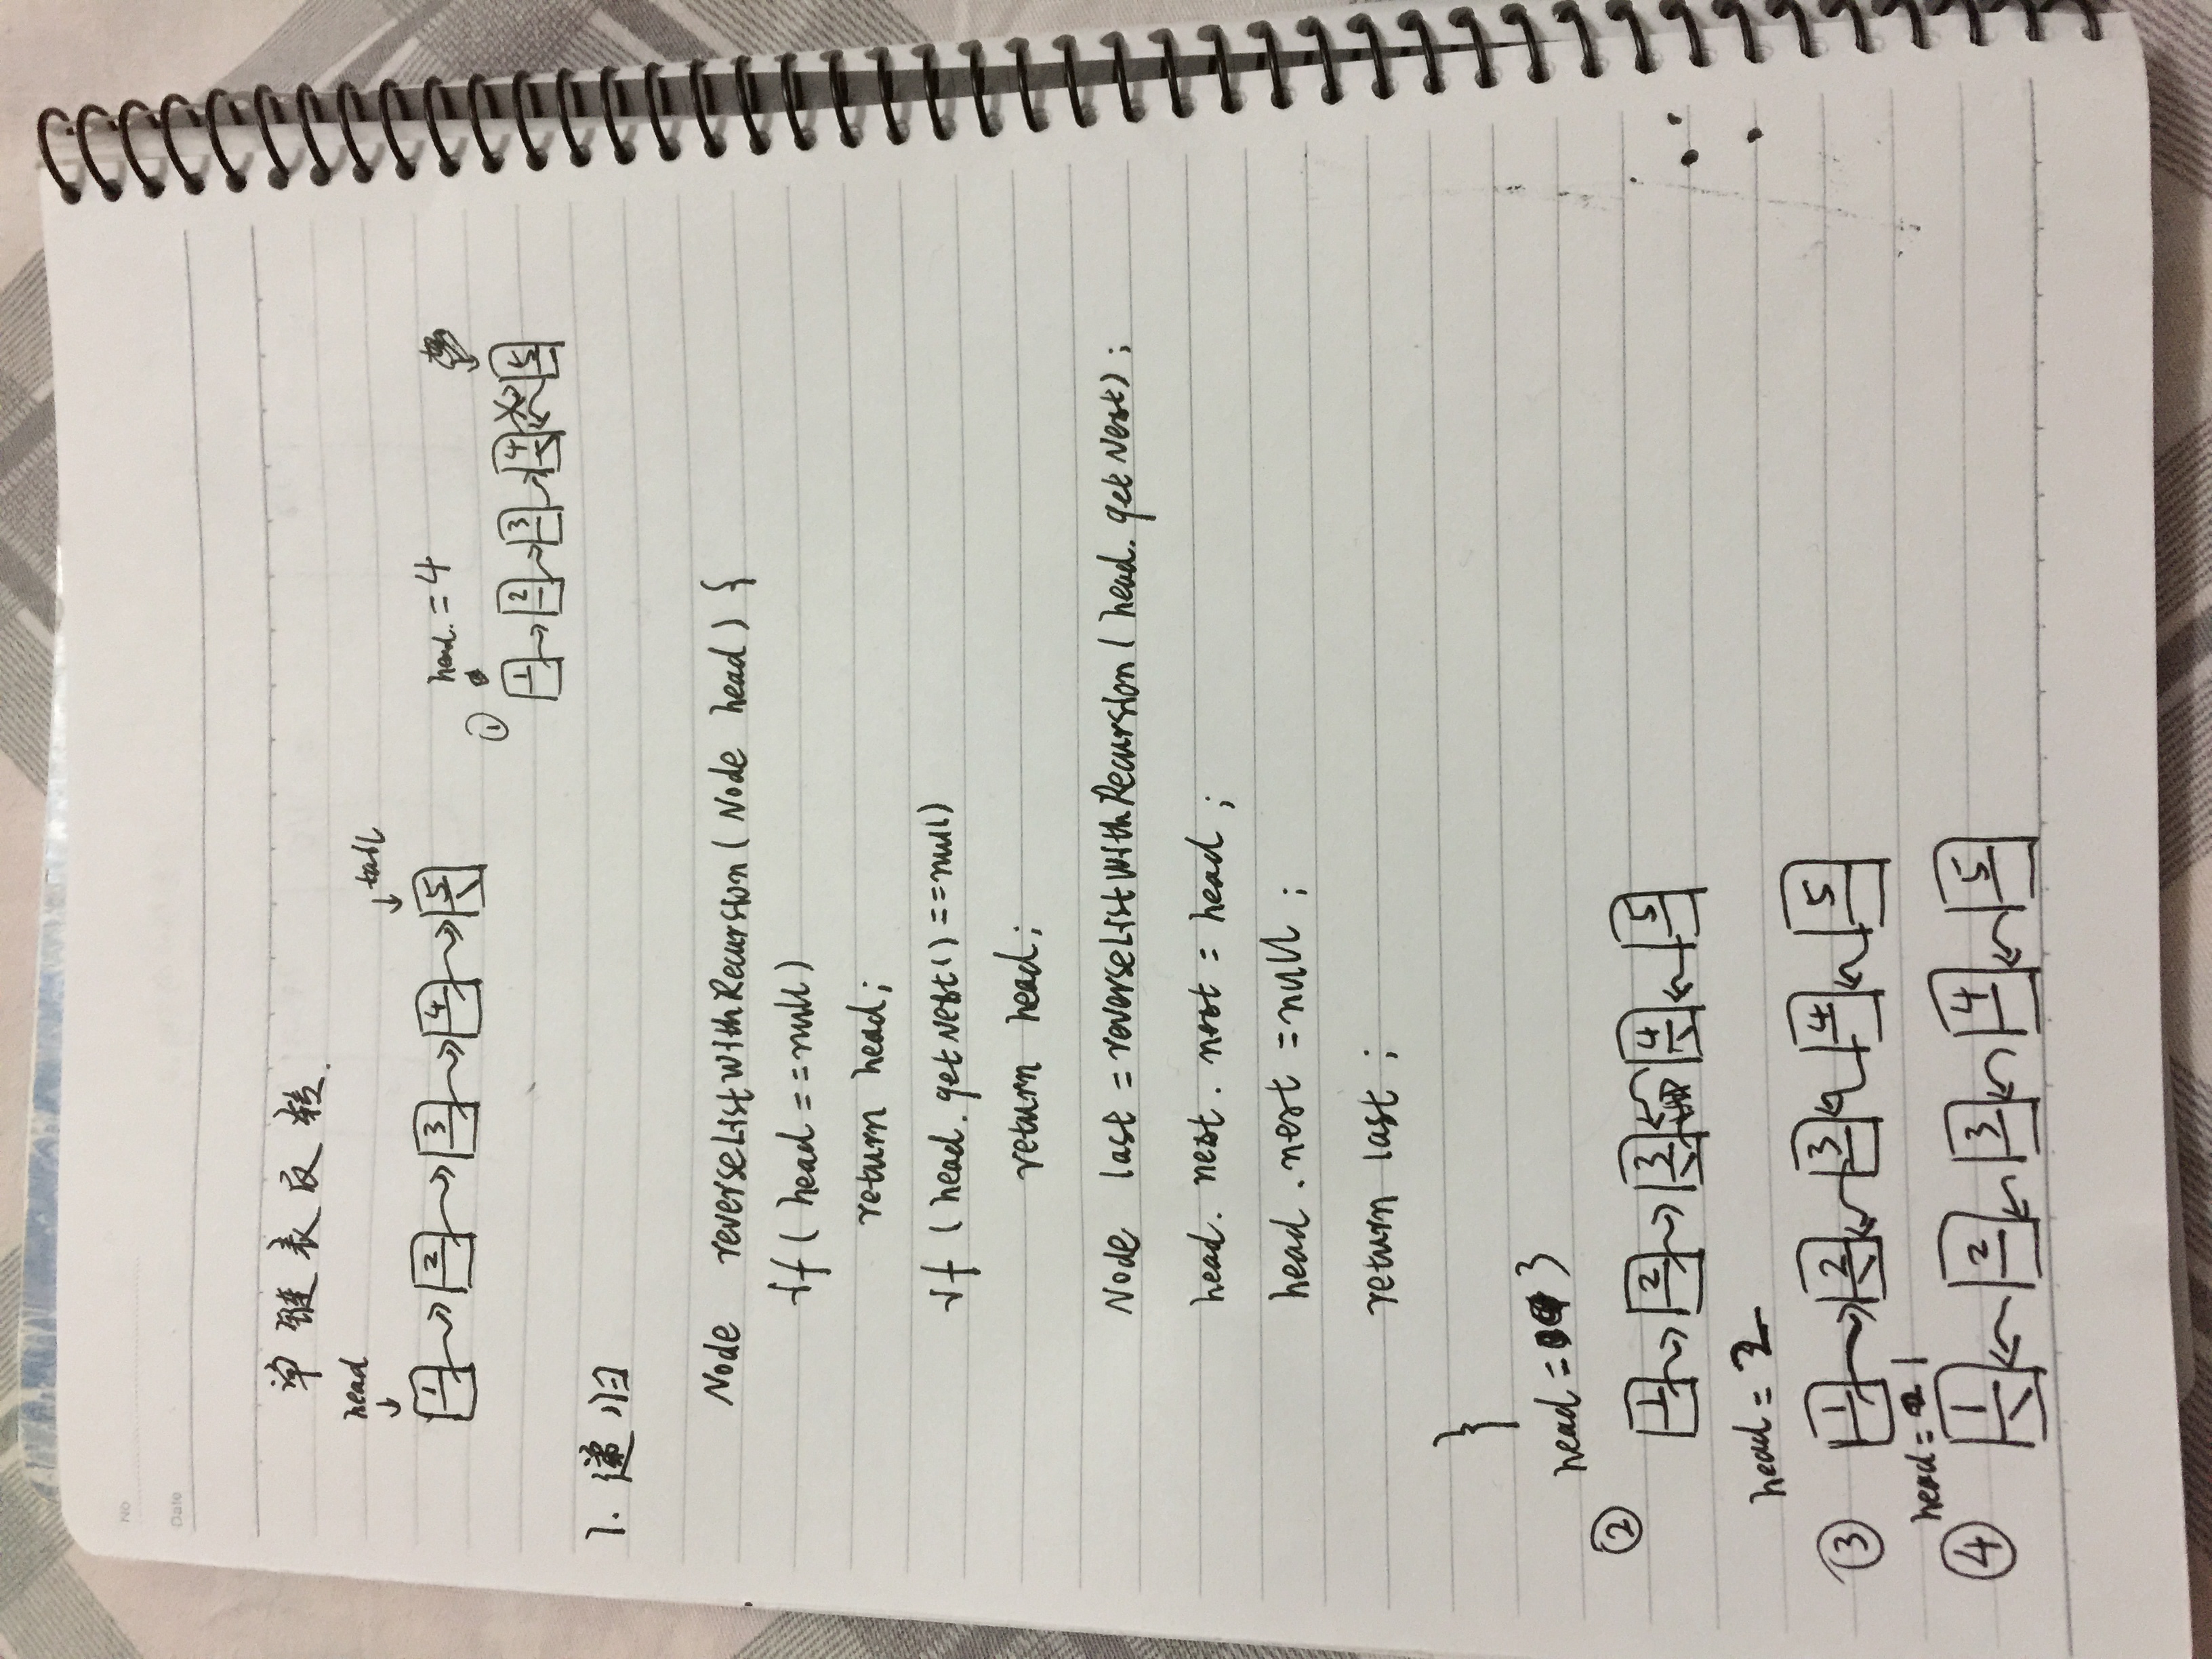 No
Date
单链表反转.
head
tail
1 2 3 4 5
head. = 4
①
1 2 3 4 5
1. 递归
Node reverseListWithRecursion ( Node head ) {
if ( head == null )
return head;
if ( head. getNext() == null )
return head;
Node last = reverseListWithRecursion ( head. getNext ) ;
head. next . next = head ;
head . next = null ;
return last ;
}
head = 3
②
1 2 3 4 5
head = 2
③
1 2 3 4 5
head = 1
④
1 2 3 4 5